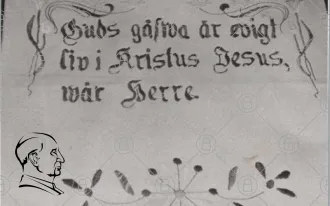 Guds gåfwa är ewigt
lif i Kristus Jesus,
wår Herre.